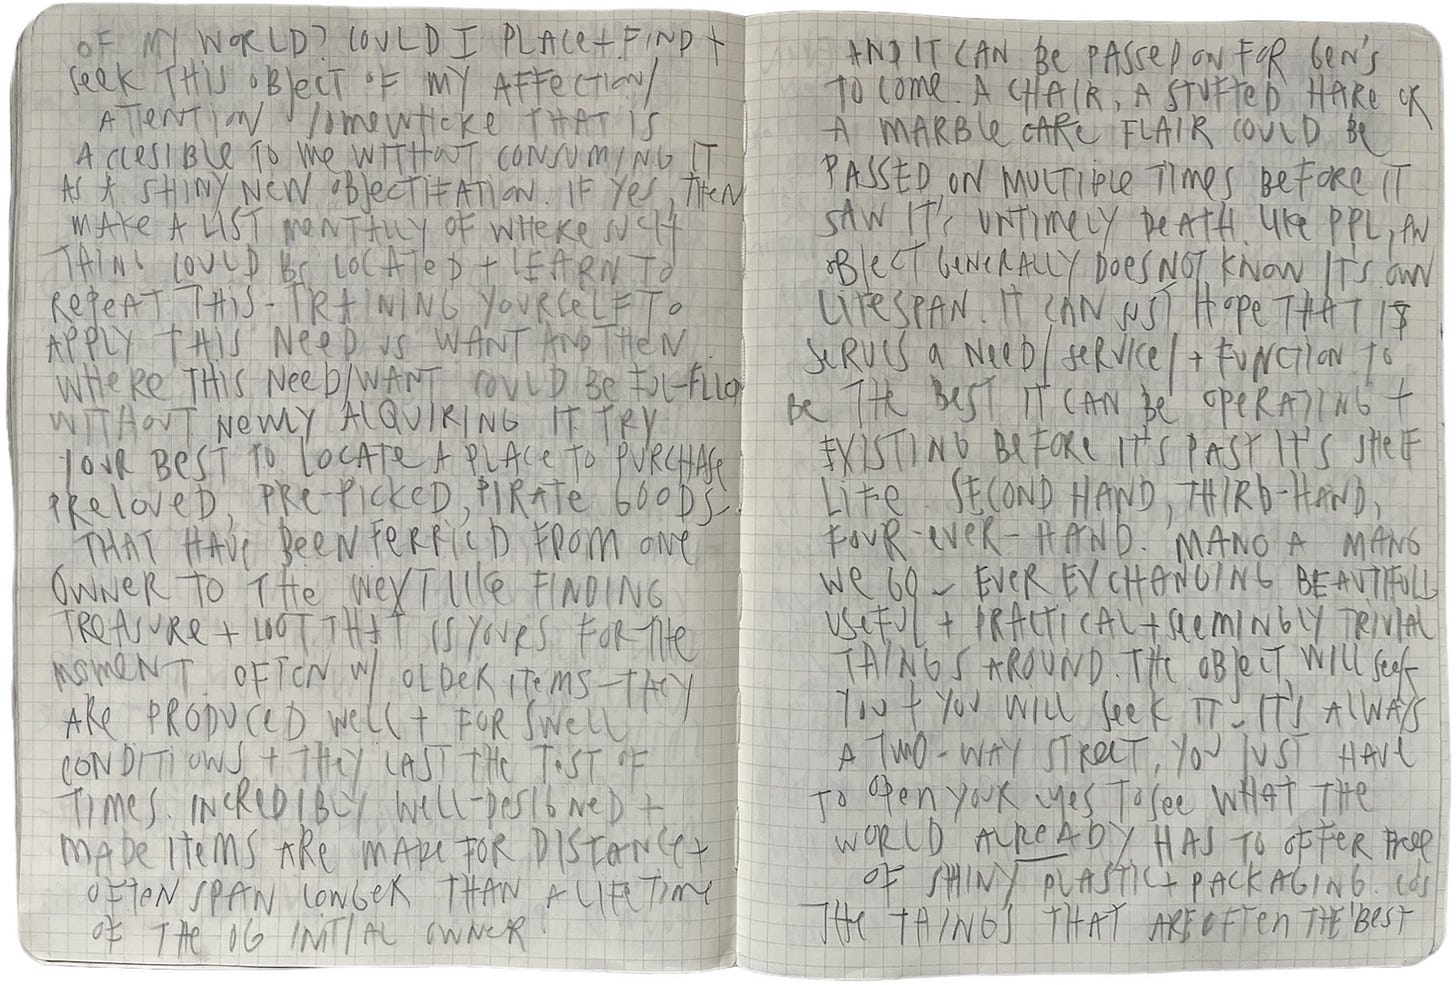 OF MY WORLD? COULD I PLACE + FIND +
SEEK THIS OBJECT OF MY AFFECTION/
ATTENTION SOMEWHERE THAT IS
ACCESIBLE TO ME WITHOUT CONSUMING IT
AS A SHINY NEW OBJECTIFATION. IF YES, THEN
MAKE A LIST MENTALLY OF WHERE SUCH
THING COULD BE LOCATED + LEARN TO
REPEAT THIS - TRAINING YOURSELF TO
APPLY THIS NEED VS WANT AND THEN
WHERE THIS NEED/WANT COULD BE
WITHOUT NEWLY ACQUIRING IT TRY
YOUR BEST TO LOCATE A PLACE TO PURCHASE
PRELOVED, PRE-PICKED, PIRATE GOODS
THAT HAVE BEEN FERRIED FROM ONE
OWNER TO THE NEXT LIKE FINDING
TREASURE + LOOT THAT IS YOURS FOR THE
MOMENT. OFTEN W/ OLDER ITEMS - THEY
ARE PRODUCED WELL + FOR SWELL
CONDITIONS + THEY LAST THE TEST OF
TIMES. INCREDIBLY WELL-DESIGNED +
MADE ITEMS ARE MADE FOR DISTANCE +
OFTEN SPAN LONGER THAN A LIFETIME
OF THE OG INITIAL OWNER
AND IT CAN BE PASSED ON FOR GEN'S
TO COME. A CHAIR, A STUFFED HARE OR
A MARBLE CARE FLAIR COULD BE
PASSED ON MULTIPLE TIMES BEFORE IT
SAW IT'S UNTIMELY DEATH. LIKE PPL, AN
OBJECT GENERALLY DOES NOT KNOW IT'S OWN
LIFESPAN. IT CAN JUST HOPE THAT IS
SERVES A NEED/SERVICE/ + FUNCTION TO
BE THE BEST IT CAN BE OPERATING +
EXISTING BEFORE IT'S PAST IT'S SHELF
LIFE. SECOND HAND, THIRD-HAND,
FOUR-EVER-HAND. MANO A MANO
WE GO - EVER EXCHANGING BEAUTIFULL
USEFUL + PRACTICAL + SEEMINGLY TRIVIAL
THINGS AROUND. THE OBJECT WILL SEEK
YOU + YOU WILL SEEK IT - IT'S ALWAYS
A TWO-WAY STREET, YOU JUST HAVE
TO OPEN YOUR EYES TO SEE WHAT THE
WORLD ALREADY HAS TO OFFER FREE
OF SHINY PLASTIC + PACKAGING. COS
THE THINGS THAT ARE OFTEN THE BEST